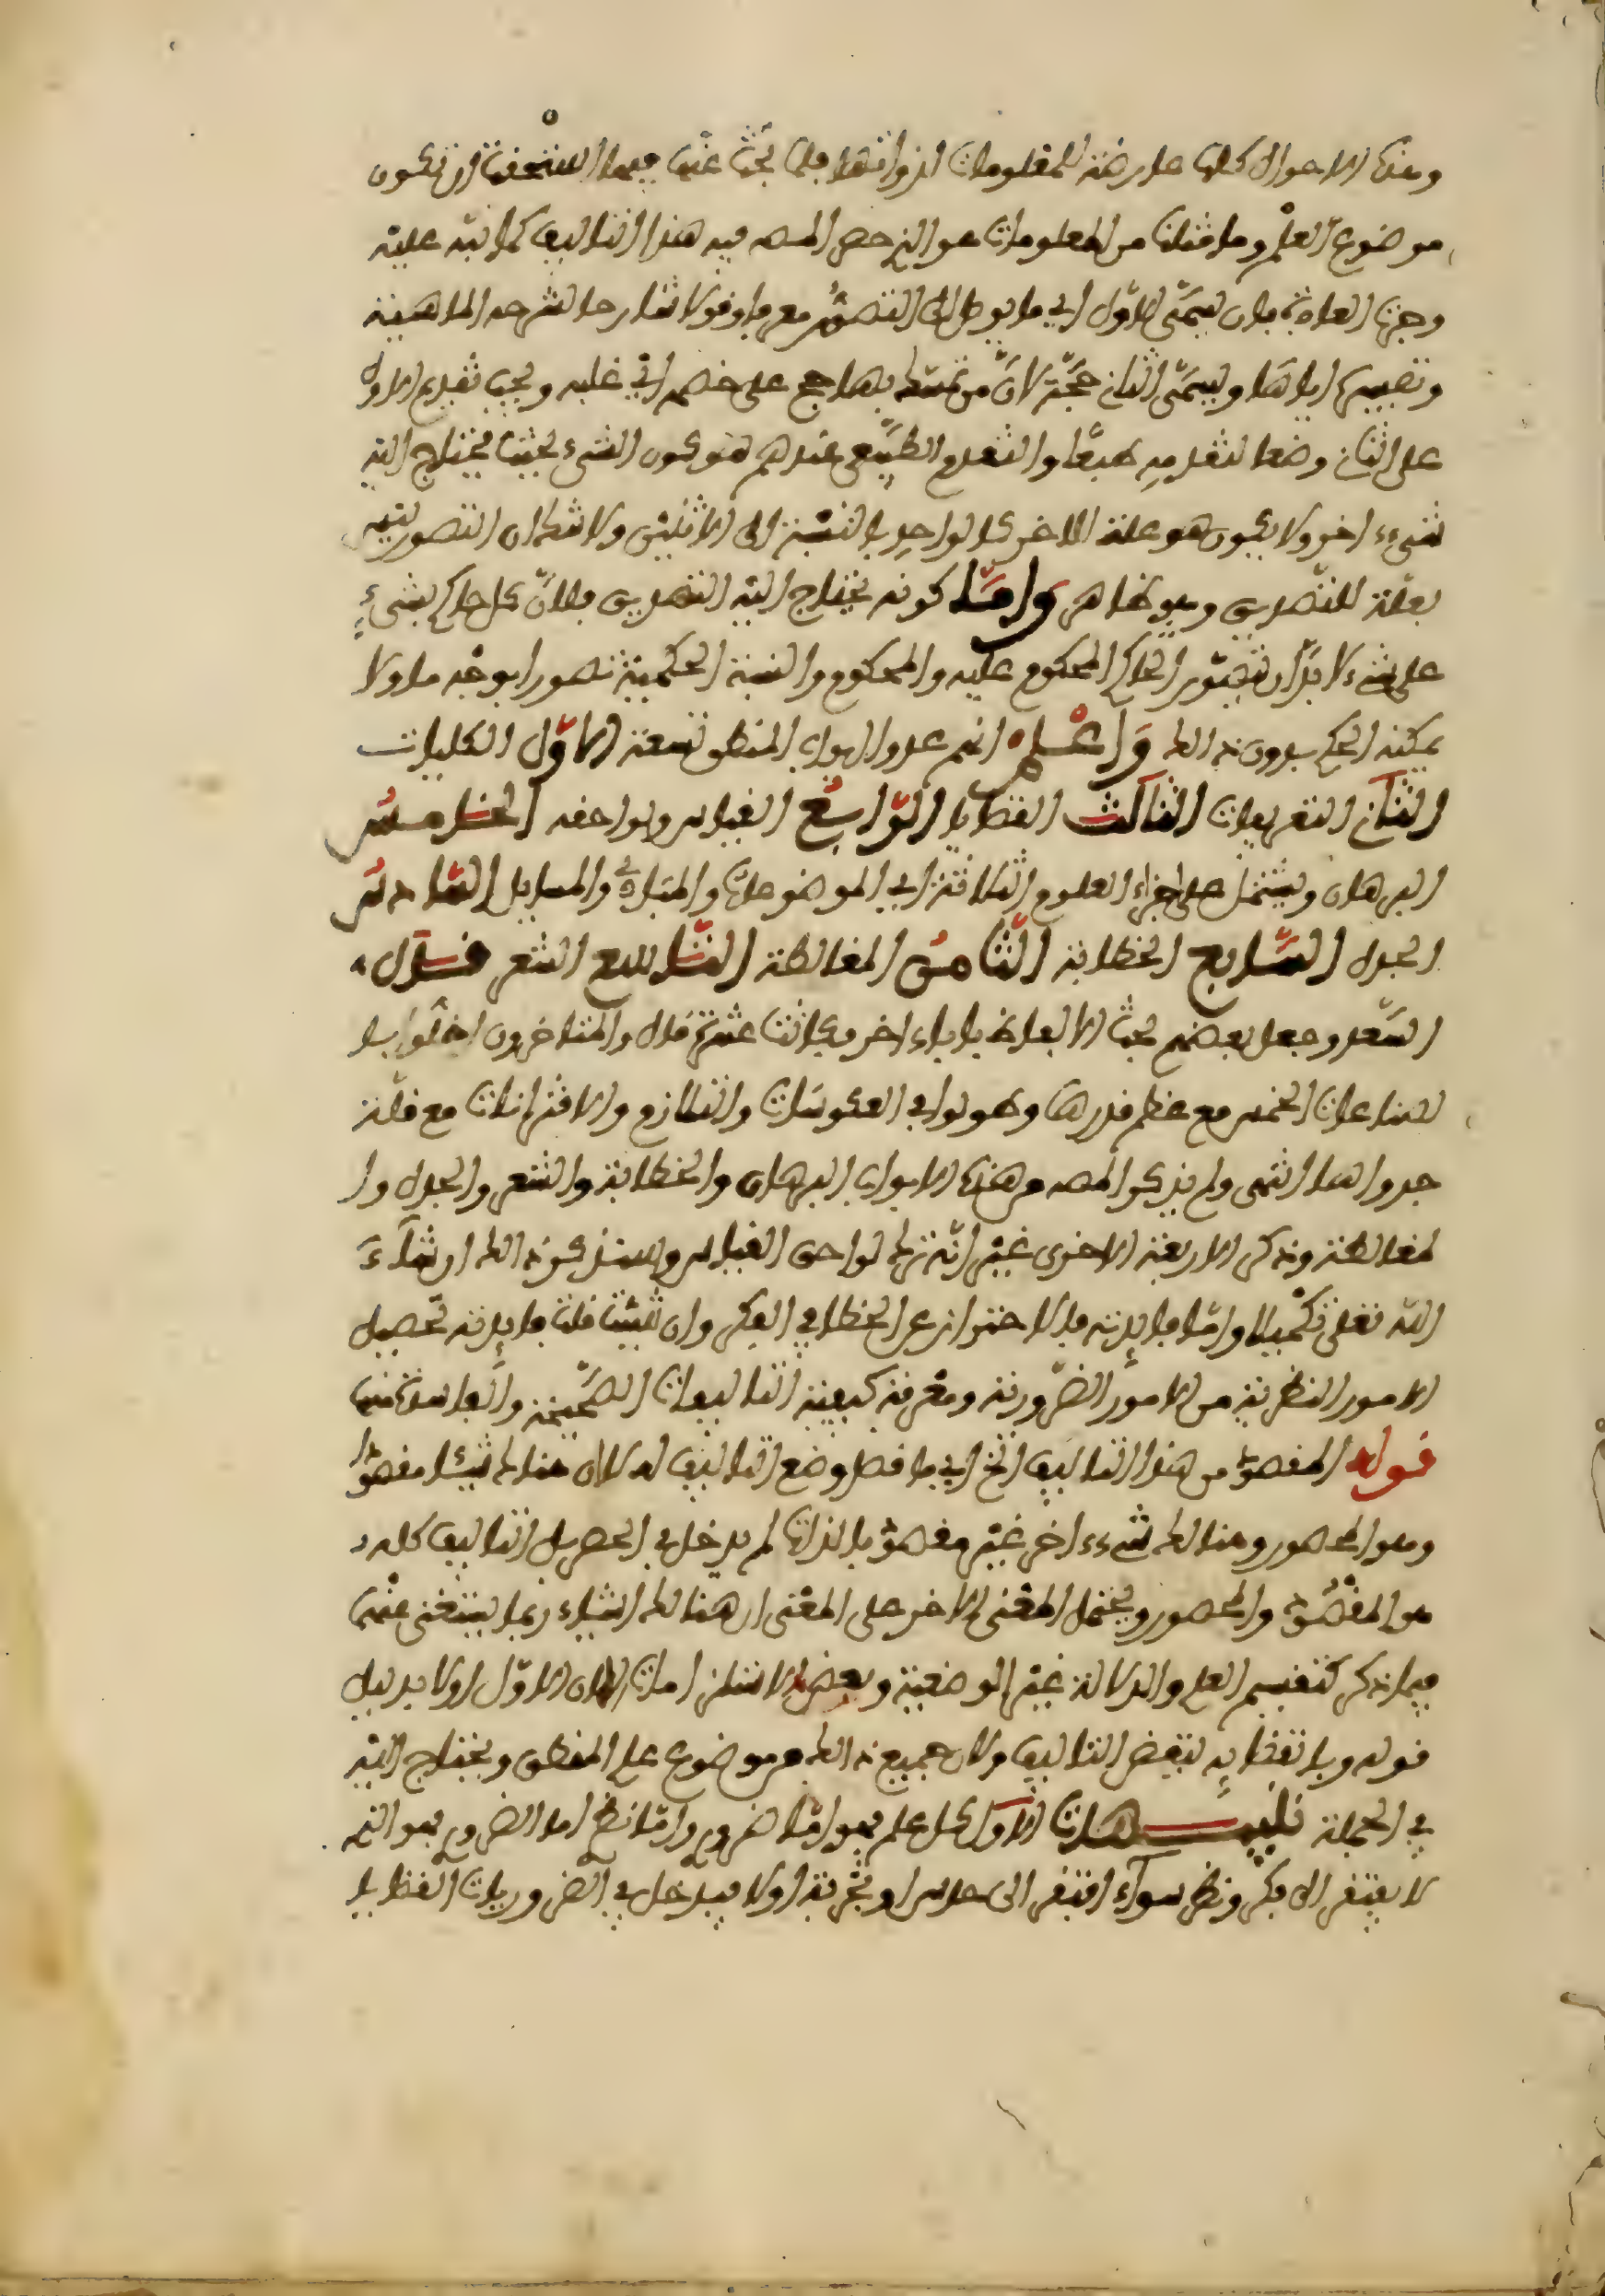 وهذه الاحوال كلها عارضة للمعلومات لذواتها فلما بحث عنها فيها استحقت ان تكون
موضوع العلم وما قلنا من المعلومات هو الذي حصر المص فيه هذا التاليف كما نبه عليه
وجرت العادة بان يسمى الاول اي ما يوصل الى التصور معرفا وقولا شارحا لشرحه الماهية
وتفسيره اياها ويسمى الثاني حجة لان من تمسك بها حج على خصمه اي غلبه ويجب تقديم الاول
على الثاني وضعا لتقدمه طبعا والتقدم الطبيعي عندهم هو كون الشيء بحيث يحتاج اليه
شيء اخر ولا يكون هو علة للاخر كالواحد بالنسبة الى الاثنين ولا شك ان التصور ليس
بعلة للتصديق وهو ظاهر واما كونه يحتاج اليه التصديق فلان كل حاكم بشيء
على شيء لا بد ان يتصور الحاكم المحكوم عليه والمحكوم والنسبة الحكمية تصورا بوجه ما ولا
يمكنه الحكم بدون ذلك واعلم انهم عدوا ابواب المنطق تسعة الاول الكليات
الثاني التعريفات الثالث القضايا الرابع القياس ولواحقه الخامس
البرهان ويشتمل على اجزاء العلوم الثلاثة اي الموضوعات والمبادئ والمسايل السادس
الجدل السابع الخطابة الثامن المغالطة التاسع الشعر قال
السعد وجعل بعضهم بحث الالفاظ بابا اخر فكانت عشرة قال والمتاخرون اخلوا با
لصناعات الخمس مع عظم قدرها وطولوا في العكوسات والتلازم والاقترانات مع قلة
جدواها انتهى ولم يذكر المص من هذه الابواب البرهان والخطابة والشعر والجدل وا
لمغالطة وذكر الاربعة الاخرى غير انه ترك لواحق القياس وسنذكر ذلك ان شاء
الله تعلى تكميلا واما فايدته فالاحتراز عن الخطا في الفكر وان شئت قلت فايدته تحصيل
الامور النظرية من الامور الضرورية ومعرفة كيفية التاليفات الصحيحة والفاسدة منها
قوله المقصود من هذا التاليف الخ اي ما قصد وضع التاليف له لا ان هنالك شيئا مقصودا
وهو المحصور وهنالك شيء اخر غير مقصود بالذات لم يدخل في الحصر بل التاليف كله
هو المقصود والمحصور ويحتمل المعنى الاخر على المعنى ان هنالك اشياء ربما يستغنى عنها
فيما ذكر كتقسيم العلم والدلالة غير الوضعية وبعض الاستلزامات الا ان الاول اولا بدليل
قوله وبانقضائه ينقض التاليف ولان جميع ذلك من موضوع علم المنطق ويحتاج اليه
في الجملة تنبيهات الاول كل علم فهو اما ضروري واما نظري اما الضروري فهو الذي
لا يفتقر الى فكر ونظر سواء افتقر الى حدس او تجربة اولا فيدخل في الضروريات القضايا